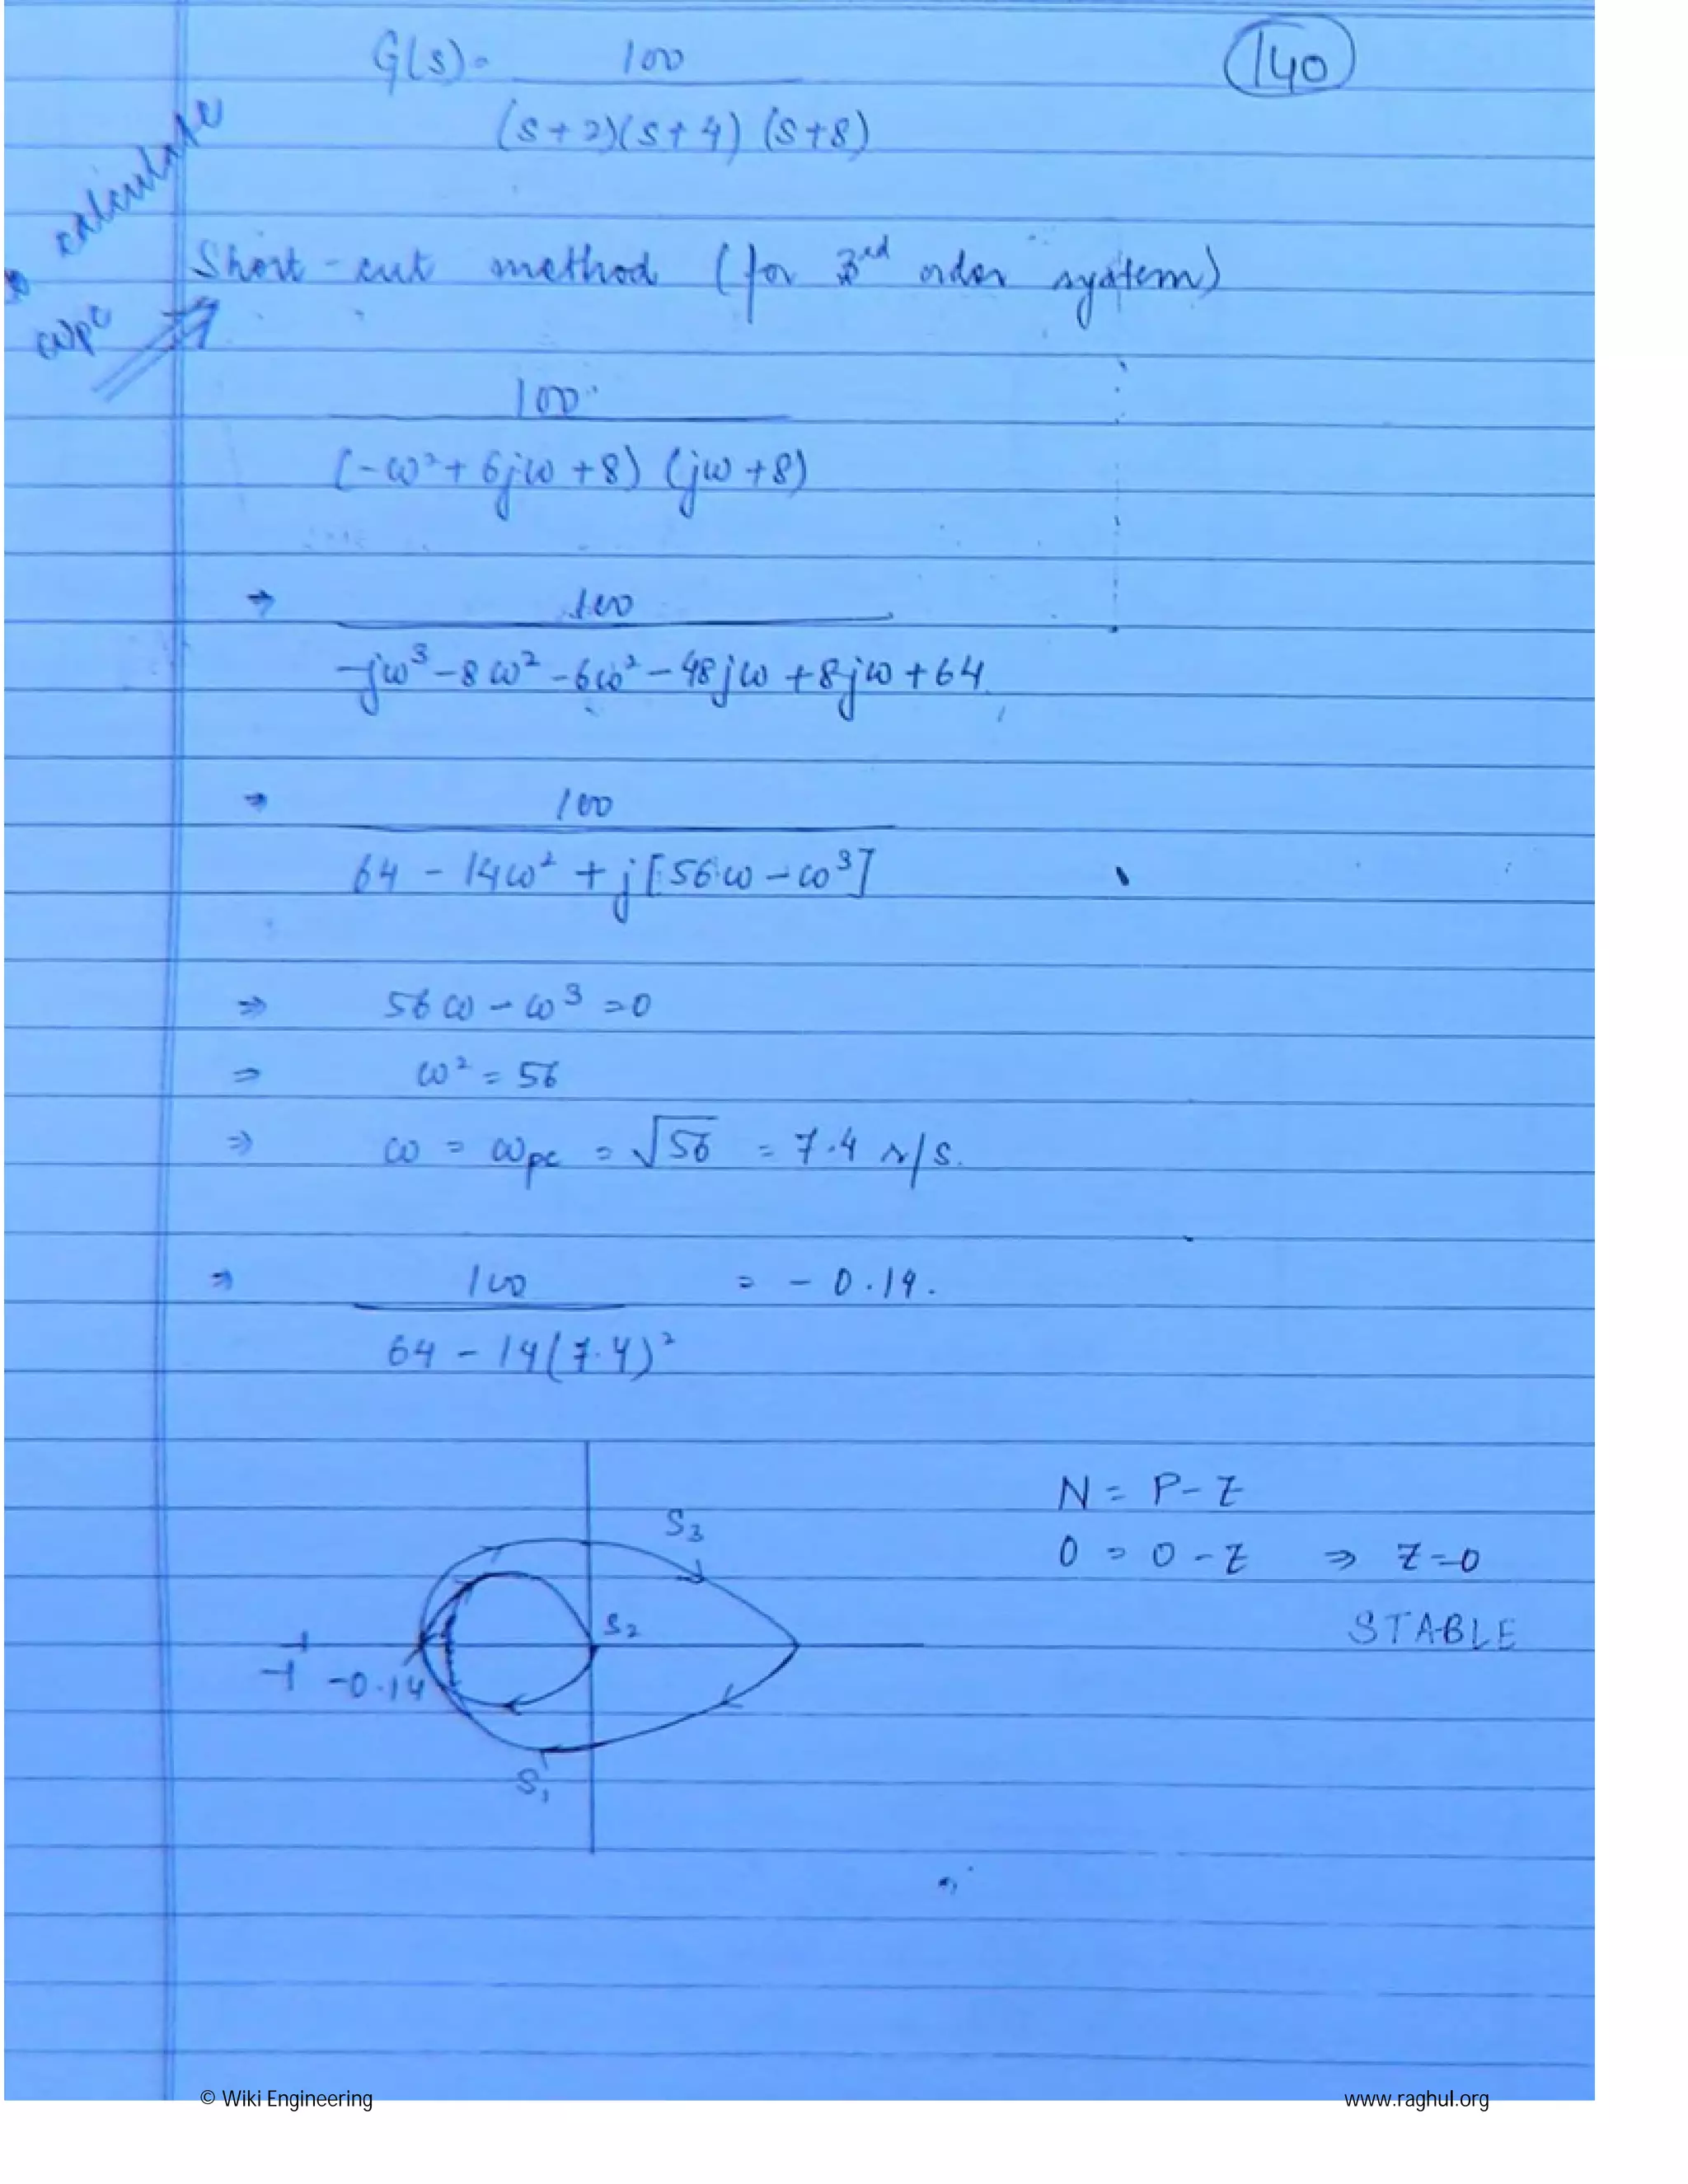 G(s) = 100
140
(s+2)(s+4) (s+8)
calculate
ωpc
Short-cut method (for 3rd order system)
100
(-ω²+ 6jω +8) (jω +8)
→ 100
-jω³ -8ω² -6ω² - 48jω +8jω +64
→ 100
64 - 14ω² + j[56ω - ω³]
⇒ 56ω - ω³ = 0
⇒ ω² = 56
⇒ ω = ωpc = √56 = 7.4 r/s.
⇒ 100 = - 0.14.
64 - 14(7.4)²
N = P - Z
S3
0 = 0 - Z ⇒ Z = 0
S2
STABLE
-1 -0.14
S1
© Wiki Engineering
www.raghul.org